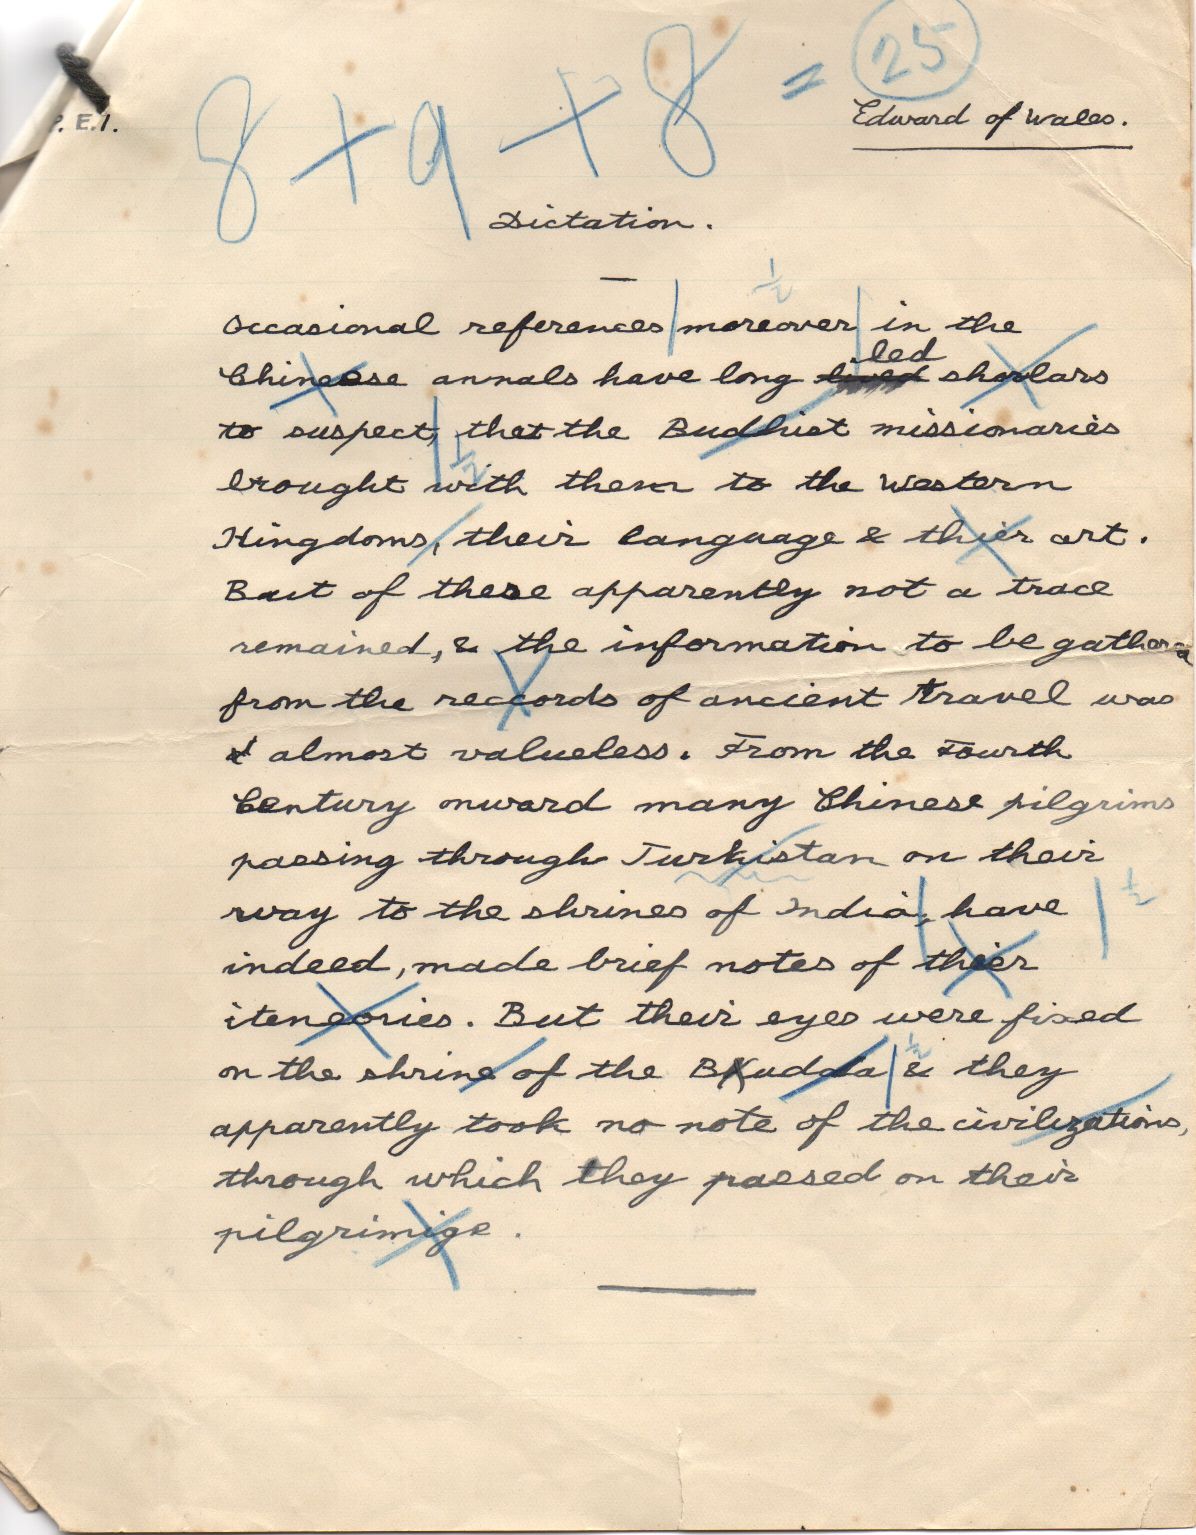 8 + 9 + 8 = 25
P. E.1.
Edward of Wales.
Dictation.
Occasional references moreover in the
½
led
Chineese annals have long lived sholars
to suspect, that the Budhist missionaries
½
brought with them to the Western
Kingdoms, their language & thier art.
But of these apparently not a trace
remained, & the information to be gathered
from the reccords of ancient travel was
almost valueless. From the Fourth
Century onward many Chinese pilgrims
passing through Turkistan on their
way to the shrines of India, have
½
indeed, made brief notes of thier
iteneories. But their eyes were fixed
½
on the shrine of the Budda & they
apparently took no note of the civilizations,
through which they passed on their
pilgrimige.